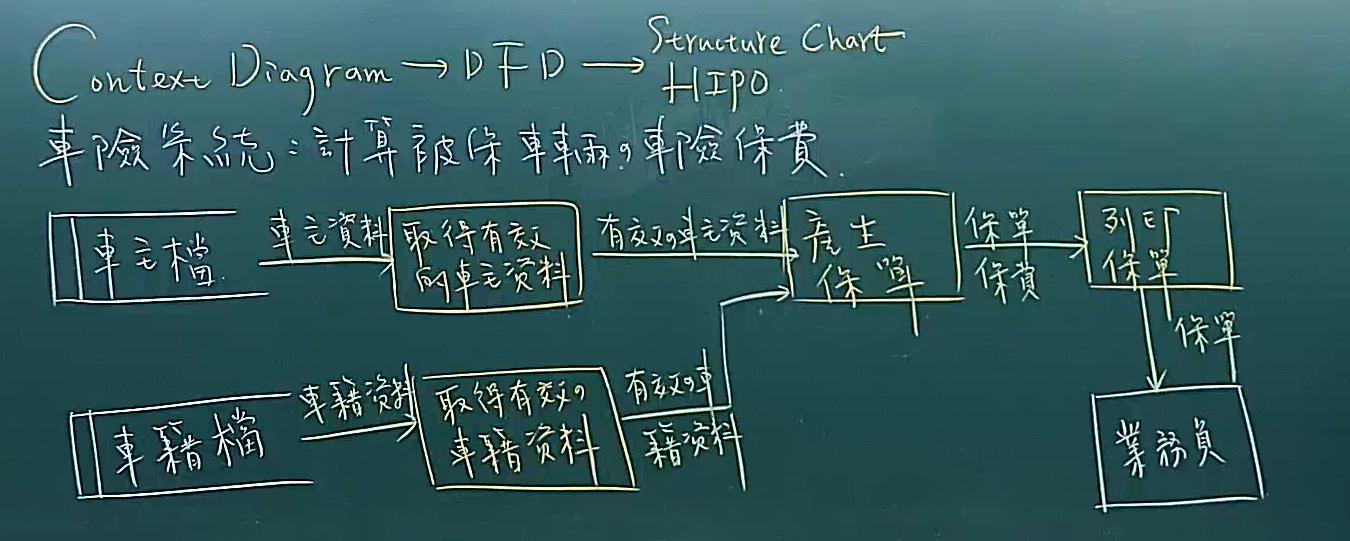 Context Diagram → DFD → Structure Chart
HIPO
車險系統：計算被保車輛の車險保費.
車主檔
車主資料
取得有效
的車主資料
有效の車主資料
產生
保單
保單
保費
列印
保單
保單
業務員
車籍檔
車籍资料
取得有效の
車籍资料
有效の車
籍资料